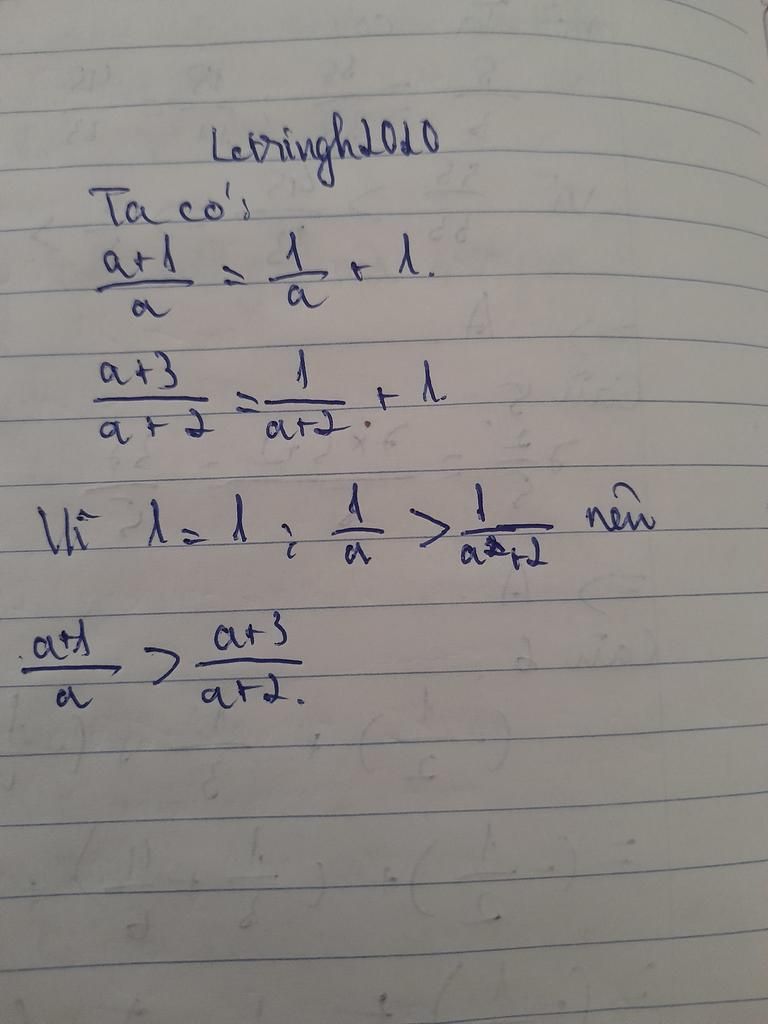 Letringh2010
Ta có:
a+1/a = 1/a + 1.
a+3/a+2 = 1/a+2 + 1.
Vì 1 = 1 ; 1/a > 1/a+2 nên
a+1/a > a+3/a+2.